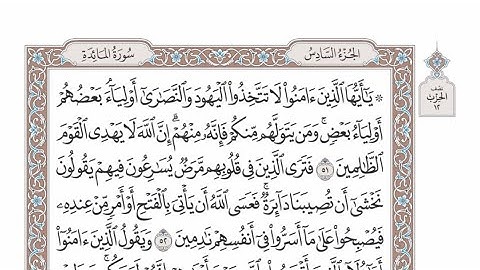 الجُزْءُ السَّادِسُ
سُورَةُ المَائِدَةِ
۞ يَٰٓأَيُّهَا ٱلَّذِينَ ءَامَنُواْ لَا تَتَّخِذُواْ ٱلۡيَهُودَ وَٱلنَّصَٰرَىٰٓ أَوۡلِيَآءَۘ بَعۡضُهُمۡ
أَوۡلِيَآءُ بَعۡضٖۚ وَمَن يَتَوَلَّهُم مِّنكُمۡ فَإِنَّهُۥ مِنۡهُمۡۗ إِنَّ ٱللَّهَ لَا يَهۡدِي ٱلۡقَوۡمَ
ٱلظَّٰلِمِينَ ٥١ فَتَرَى ٱلَّذِينَ فِي قُلُوبِهِم مَّرَضٞ يُسَٰرِعُونَ فِيهِمۡ يَقُولُونَ
نَخۡشَىٰٓ أَن تُصِيبَنَا دَآئِرَةٞۚ فَعَسَى ٱللَّهُ أَن يَأۡتِيَ بِٱلۡفَتۡحِ أَوۡ أَمۡرٖ مِّنۡ عِندِهِۦ
فَيُصۡبِحُواْ عَلَىٰ مَآ أَسَرُّواْ فِيٓ أَنفُسِهِمۡ نَٰدِمِينَ ٥٢ وَيَقُولُ ٱلَّذِينَ ءَامَنُوٓاْ
نصف
الحزب
١٢